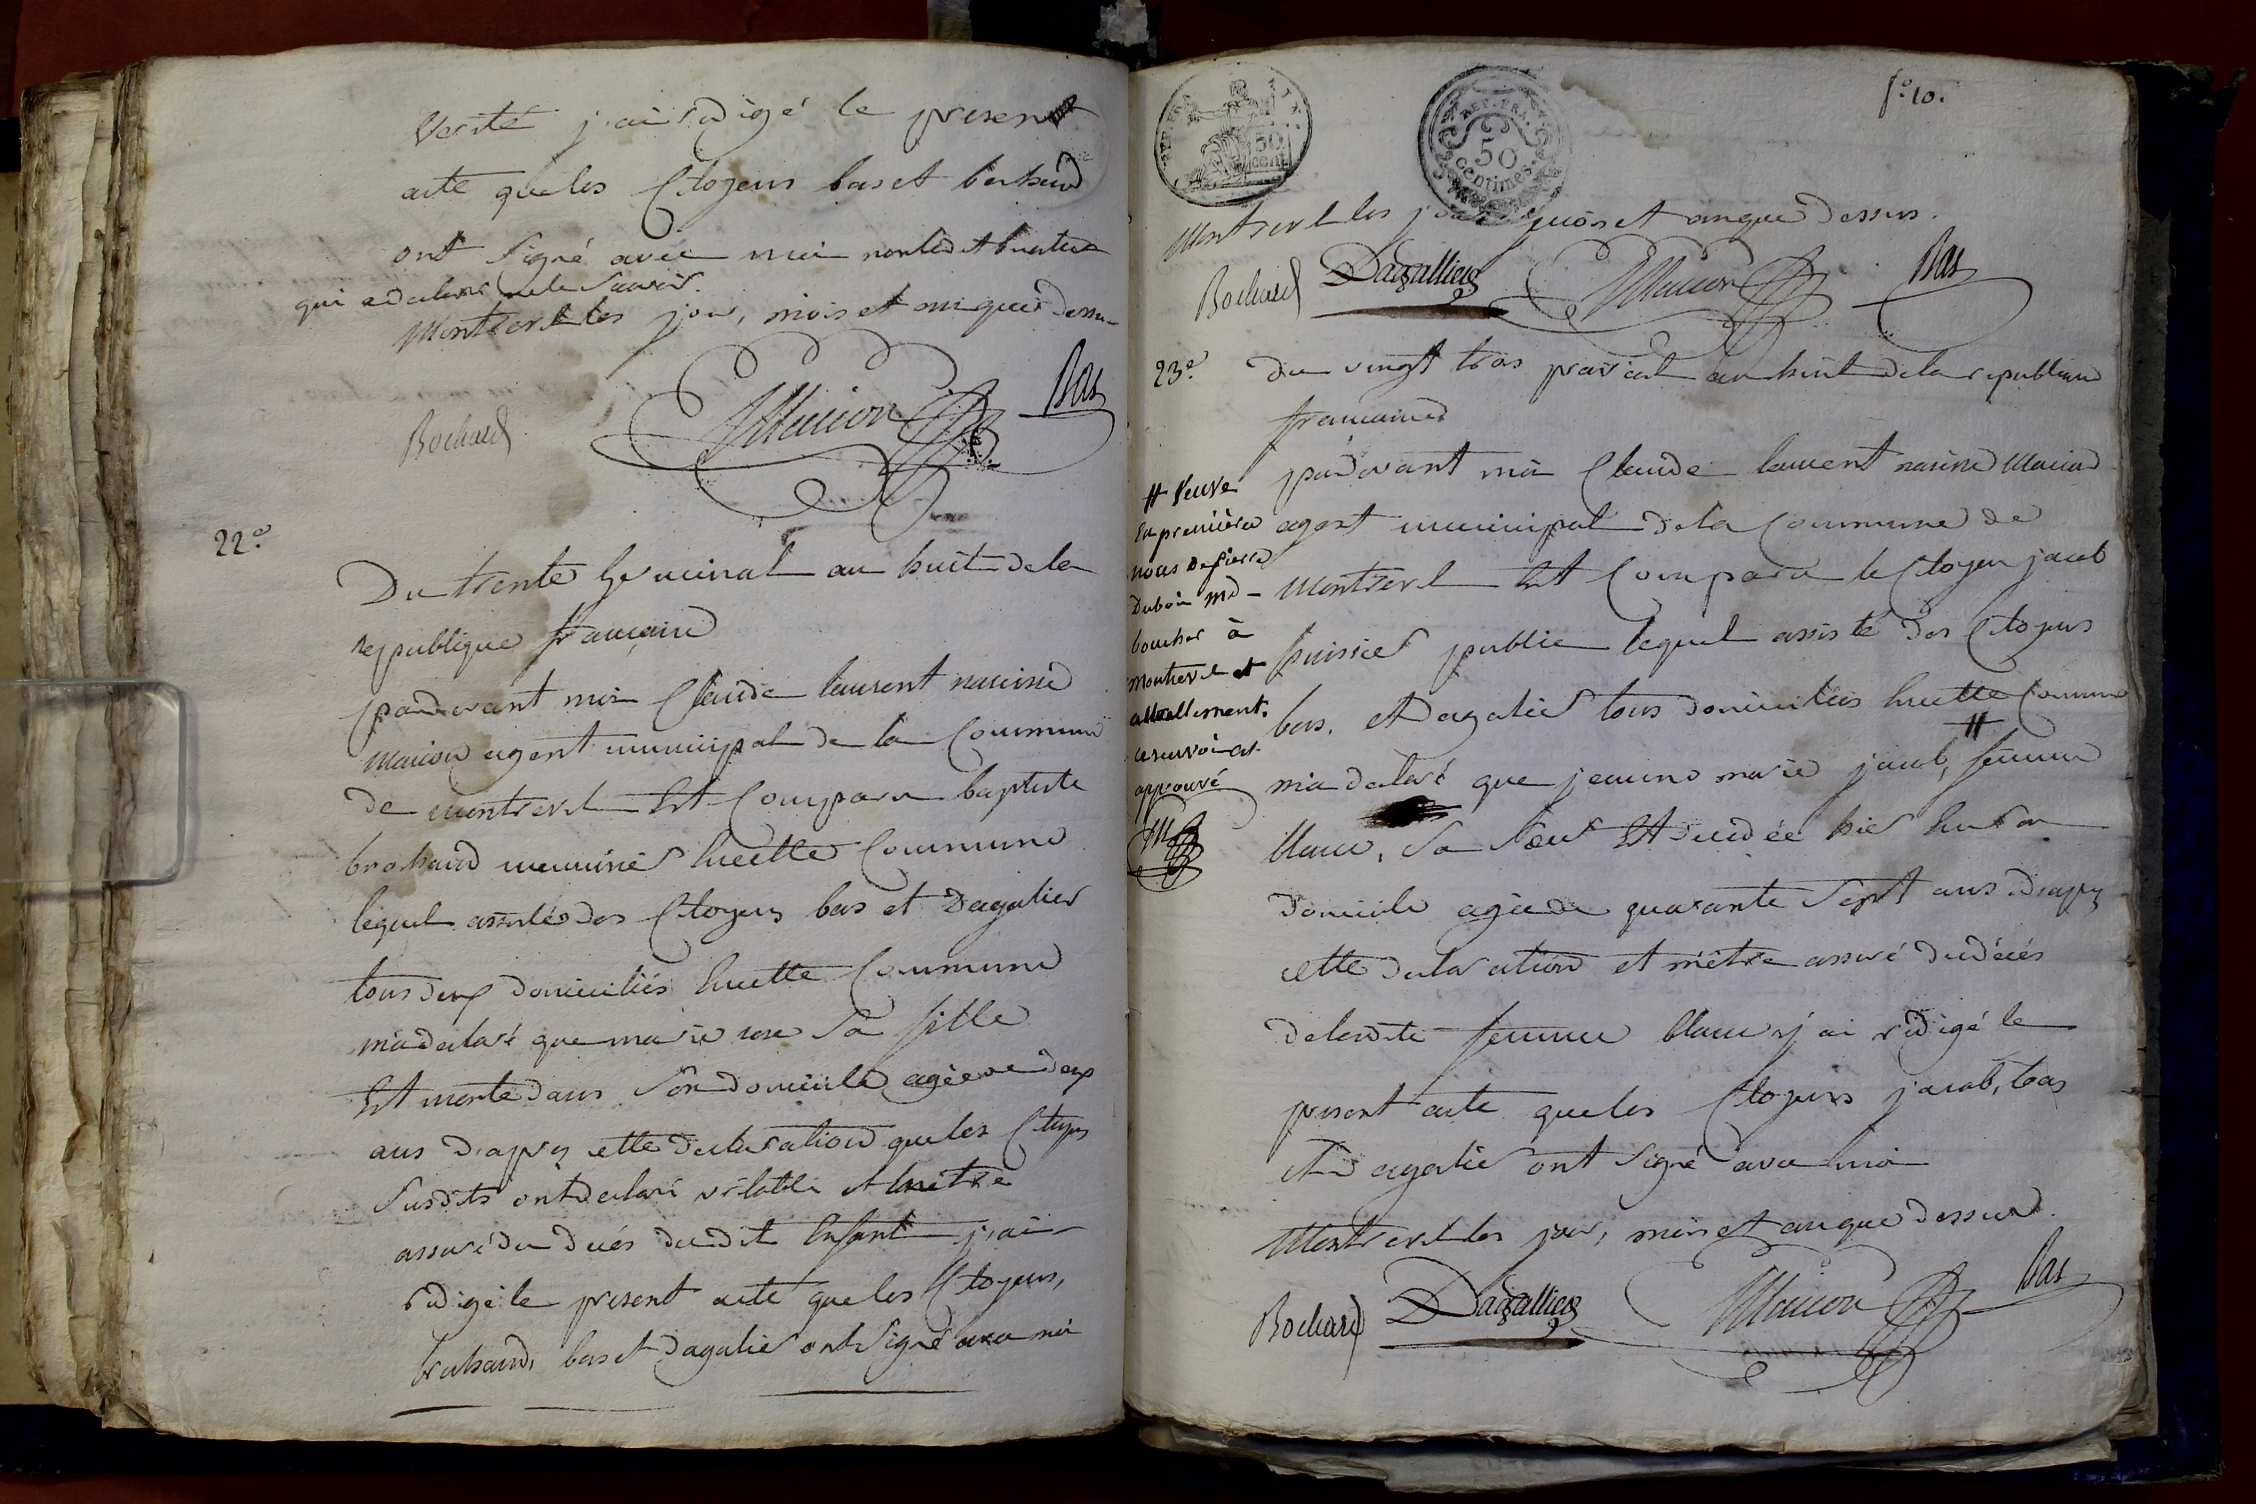 verité j'ai redigé le present
acte que les Citoyens bas et bochard
ont signé avec moi non ledit
qui a declaré ne le savoir.
Montrevel les jour, mois et an que dessus
Bochard Maicon Bas
22e.
Du trente Germinal an huit de la
republique française
pardevant moi Claude laurent narcisse
Maicon agent municipal de la Commune
de montrevel Est Comparu baptiste
brochand menuisier susditte Commune
lequel assisté des Citoyens bas et Dagalier
tous deux domiciliés Commune
m'a declaré que marie rose sa fille
Est morte dans son domicile agée de deux
ans D'apres cette declaration que les Citoyens
susdits ont declaré veritable et m'être
assuré du décés dudit Enfant j'ai
redigé le present acte que les Citoyens,
brochand, bas et Dagalier ont signé avec moi
fo. 10.
REP. FRA.
50
cent
REP. FRA.
50
centimes
Montrevel les jour mois et an que dessus.
Bochard Dagallier Maicon Bas
23e.
Du vingt trois prairial an huit de la republique
française
pardevant moi Claude laurent narcisse Maicon
agent municipal de la Commune de
Montrevel Est Comparu le Citoyen jacob
huissier public lequel assisté des Citoyens
bas, et Dagalier tous domiciliés Commune
m'a declaré que jeanne marie jacob, # femme
blanc, sa sœur Est decédée hier en son
domicile agée de quarante sept ans D'apres
cette declaration et m'être assuré du décés
de ladite femme blanc j'ai redigé le
present acte que les Citoyens jacob, bas
et Dagalier ont signé avec moi
Montrevel les jour, mois et an que dessus.
# Veuve
En premiere
noces de pierre
Dubois md
boucher à
Montrevel et
actuellement.
ce renvoi est
approuvé
M
Bochard Dagallier Maicon Bas